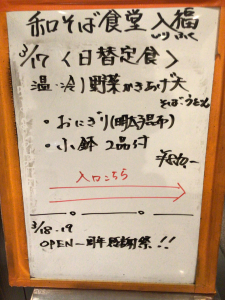 和そば食堂 入福
いりふく
3/17 〈日替定食〉
温・冷 野菜かきあげ天
そばorうどん
・おにぎり(明太・昆布)
・小鉢 2品付
入口こちら
3/18・19
OPEN一周年感謝祭!!